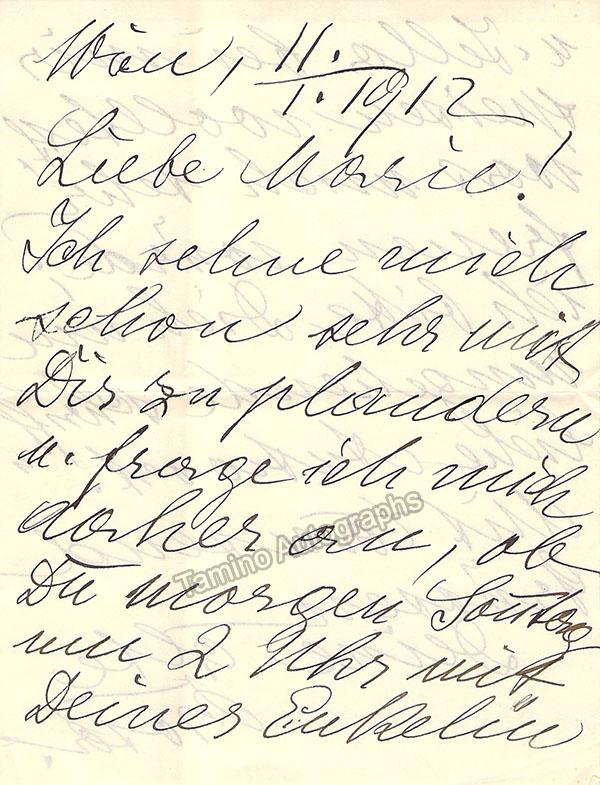 Wien, 11.
1. 1912
Liebe Marie!
Ich sehne mich
schon sehr mit
Dir zu plaudern
u. frage ich mich
daher an, ob
Du morgen Sonntag
um 2 Uhr mit
Deiner Enkelin
Tamino Autographs